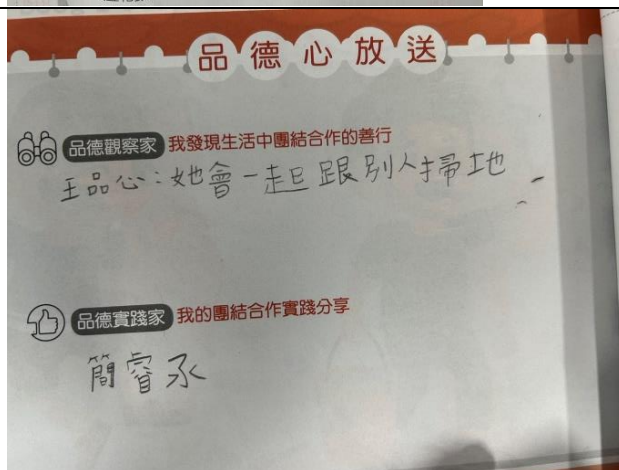 品德心放送
品德觀察家 我發現生活中團結合作的善行
王品心：她會一起跟別人掃地
品德實踐家 我的團結合作實踐分享
簡睿承